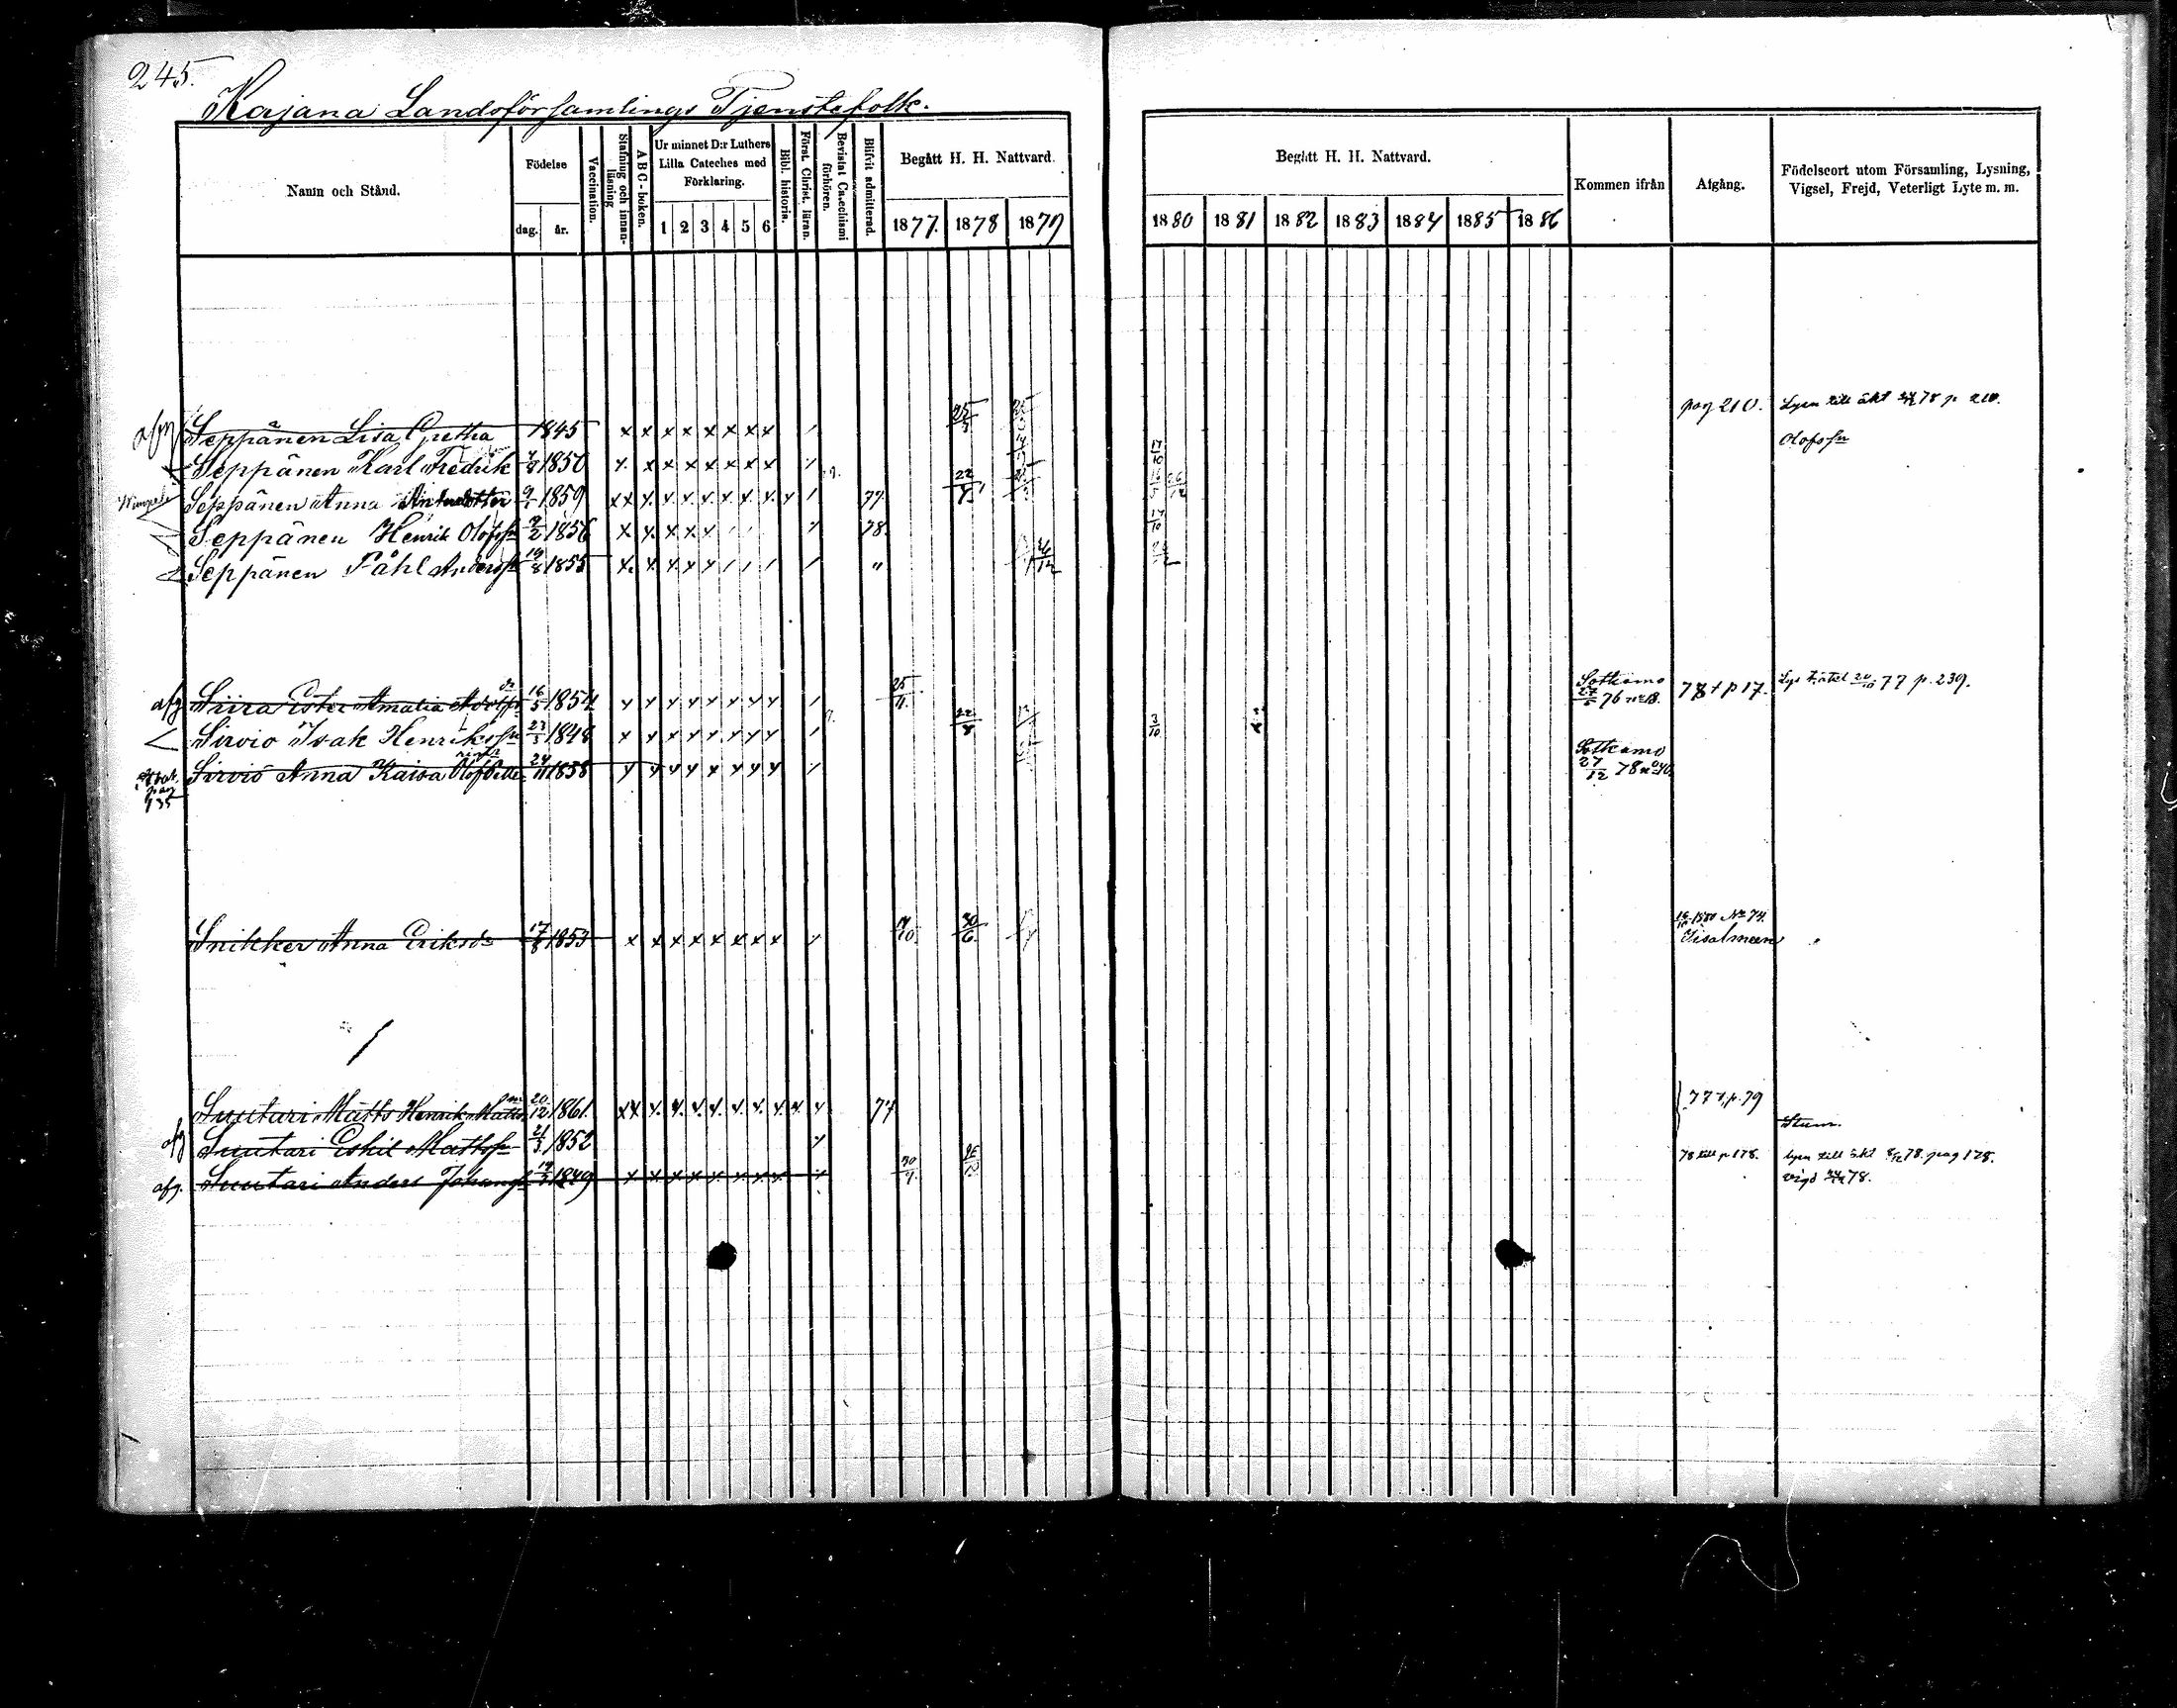 245.
Kajana Landsförsamlings Tjenstefolk.
Namn och Stånd.
Födelse
dag. år.
Vaccination.
Stafning och innan-läsning
ABC-boken.
Ur minnet D:r Luthers Lilla Cateches med Förklaring.
1 2 3 4 5 6
Bibl. historia.
Först. Christ. läran.
Bevistat Catechismi förhören.
Blifvit admitterad.
Begått H. H. Nattvard.
1877. 1878 1879
Begått H. H. Nattvard.
1880 1881 1882 1883 1884 1885 1886
Kommen ifrån
Afgång.
Födelseort utom Församling, Lysning, Vigsel, Frejd, Veterligt Lyte m. m.
afg Seppänen Lisa Gretha 1845 x x x x x x x x / 25 pag 210. Lysn till äkt 78 p 210.
Olofsson
Seppänen Karl Fredrik 1850 x x x x x x x x 17/10
Seppänen Anna 9/1 1859 x x x x x x x x x / 77. 22
Seppänen Henrik Olofsson 9/2 1856 x x x x x / / 78. 17/10
Seppänen Påhl Andersson 19/8 1855 x x x x x / / / / " 26/12
afg Siira Ester Amalia Adolfs dr 16/5 1854 x x x x x x x x / 25/11 Sotkamo 27/5 76 No 13. 78 t p 17. Lys t äkt 20/10 77 p. 239.
Sirvio Isak Henriksson 23/3 1848 x x x x x x x x / 22/8 3/10
Sirviö Anna Kaisa Olof Petter 24/11 1858 x x x x x x x x / Sotkamo 27/12 78 No 40
pag 135
Snikker Anna Eriksdr 17/8 1853 x x x x x x x x 14/10 30/6 1880 No 74. Iisalmeen
Suutari Matts Henrik Matts sn 20/12 1861. x x x x x x x x x x 77 77 t. p. 79
afg Suutari Eskil Mattsson 21/3 1852 Stum.
afg. Suutari Anders Johansson 1849 x x x x x x x x 30 78 till p 178. Lysn till äkt 78. pag 178.
vigd 78.